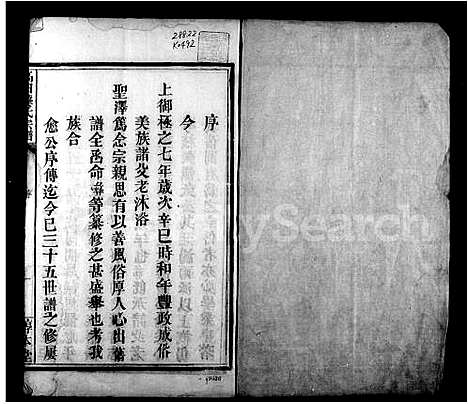 28822
K0492
序
今
上御極之七年歲次辛巳時和年豐政成俗
美族諸父老沐浴
聖澤篤念宗親思有以善風俗厚人心出舊
譜全函命等纂修之甚盛舉也考我
族合
愈公序傳迄今已三十五世譜之修屢
MySearch